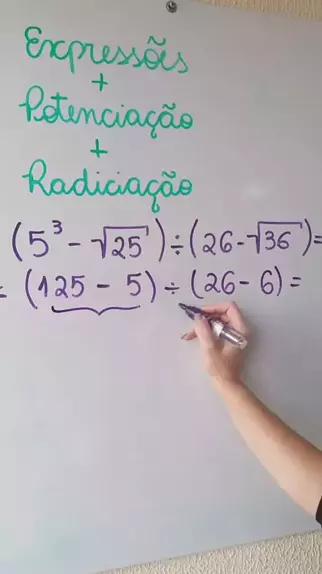 Expressões
+
Potenciação
+
Radiciação
(5³ - √25) ÷ (26 - √36) =
= (125 - 5) ÷ (26 - 6) =